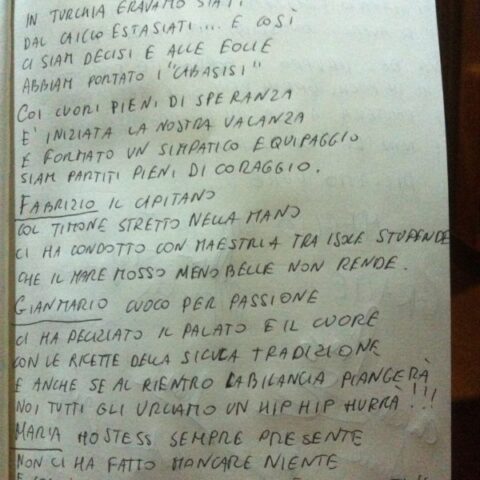 IN TURCHIA ERAVAMO STATI
DAL CAICCO ESTASIATI... E COSÌ
CI SIAM DECISI E ALLE EOLIE
ABBIAM PORTATO I "CABASISI"
COI CUORI PIENI DI SPERANZA
E' INIZIATA LA NOSTRA VACANZA
E FORMATO UN SIMPATICO EQUIPAGGIO
SIAM PARTITI PIENI DI CORAGGIO.
FABRIZIO IL CAPITANO
COL TIMONE STRETTO NELLA MANO
CI HA CONDOTTO CON MAESTRIA TRA ISOLE STUPENDE
CHE IL MARE MOSSO MENO BELLE NON RENDE.
GIANMARIO CUOCO PER PASSIONE
CI HA DELIZIATO IL PALATO E IL CUORE
CON LE RICETTE DELLA SICULA TRADIZIONE
E ANCHE SE AL RIENTRO LA BILANCIA PIANGERÀ
NOI TUTTI GLI URLIAMO UN HIP HIP HURRÀ!!!
MARIA HOSTESS SEMPRE PRESENTE
NON CI HA FATTO MANCARE NIENTE